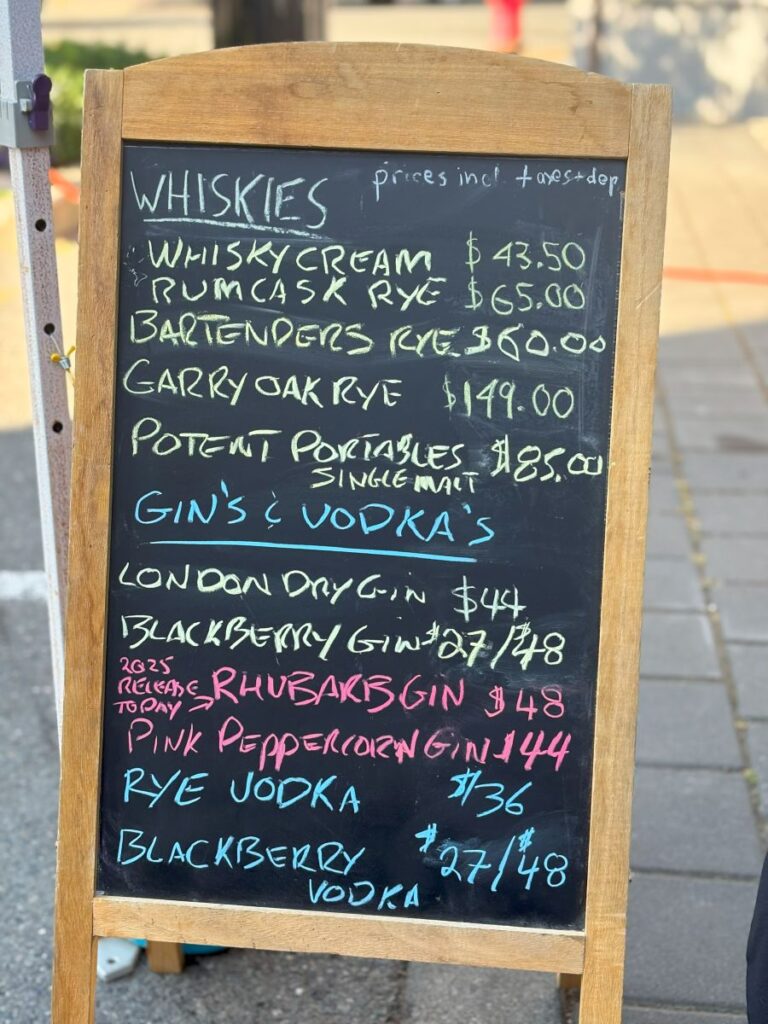 WHISKIES prices incl. taxes+dep
WHISKY CREAM $43.50
RUM CASK RYE $65.00
BARTENDERS RYE $60.00
GARRY OAK RYE $149.00
POTENT PORTABLES $85.00
SINGLE MALT
GIN'S & VODKA'S
LONDON DRY GIN $44
BLACKBERRY GIN $27/$48
2025
RELEASE
TODAY → RHUBARB GIN $48
PINK PEPPERCORN GIN $44
RYE VODKA $36
BLACKBERRY $27/$48
VODKA